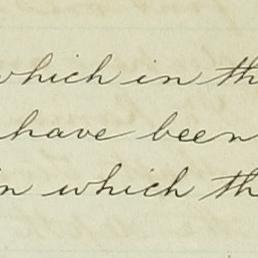 which in th
have been
in which th